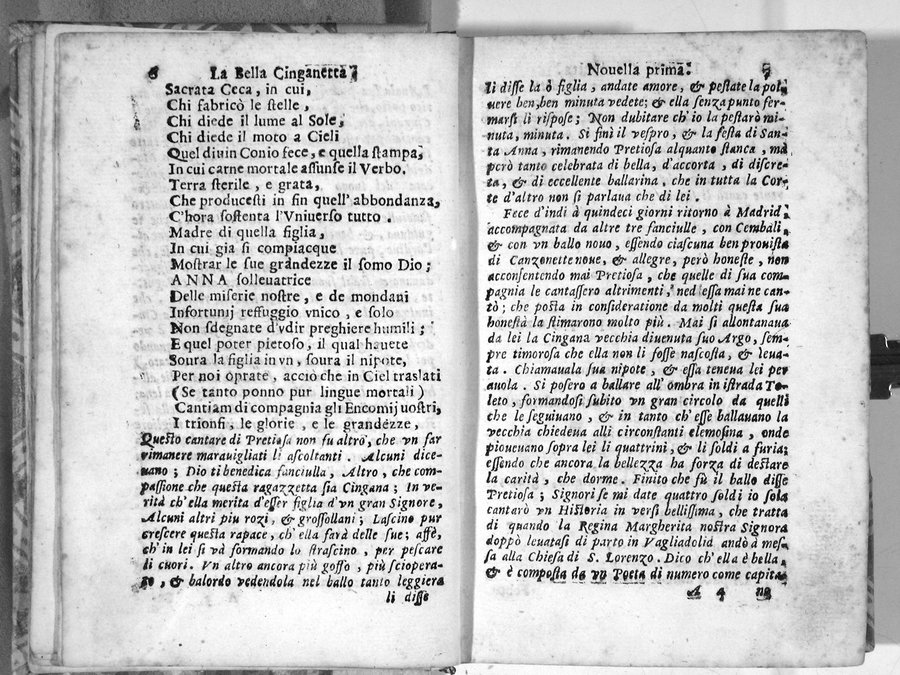 6 La Bella Cinganetta
Sacrata Ceca, in cui,
Chi fabricò le stelle,
Chi diede il lume al Sole,
Chi diede il moto a Cieli
Quel diuin Conio fece, e quella stampa,
In cui carne mortale assunse il Verbo.
Terra sterile, e grata,
Che producesti in fin quell' abbondanza,
C'hora sostenta l'Vniuerso tutto.
Madre di quella figlia,
In cui già si compiacque
Mostrar le sue grandezze il somo Dio;
ANNA solleuatrice
Delle miserie nostre, e de mondani
Infortunij reffuggio vnico, e solo
Non sdegnate d'vdir preghiere humili;
E quel poter pietoso, il qual hauete
Soura la figlia in vn, soura il nipote,
Per noi oprate, acciò che in Ciel traslati
(Se tanto ponno pur lingue mortali)
Cantiam di compagnia gli Encomij uostri,
I trionfi, le glorie, e le grandezze,
Questo cantare di Pretiosa non fu altro, che vn far
rimanere marauigliati li ascoltanti. Alcuni dice-
uano; Dio ti benedica fanciulla, Altro, che com-
passione che questa ragazzetta sia Cingana; In ve-
rità ch'ella merita d'esser figlia d'vn gran Signore,
Alcuni altri piu rozi, & grossollani; Lascino pur
crescere questa rapace, ch'ella farà delle sue; affè,
ch'in lei si và formando lo strascino, per pescare
li cuori. Vn altro ancora più goffo, più sciopera-
to, & balordo vedendola nel ballo tanto leggiera
li disse
Nouella prima. 7
li disse la ò figlia, andate amore, & pestate la pol-
uere ben, ben minuta vedete; & ella senza punto fer-
marsi li rispose; Non dubitare ch'io la pestarò mi-
nuta, minuta. Si finì il vespro, & la festa di San-
ta Anna, rimanendo Pretiosa alquanto stanca, ma
però tanto celebrata di bella, d'accorta, di discre-
ta, & di eccellente ballarina, che in tutta la Cor-
te d'altro non si parlaua che di lei.
Fece d'indi à quindeci giorni ritorno à Madrid,
accompagnata da altre tre fanciulle, con Cembali,
& con vn ballo nouo, essendo ciascuna ben prouista
di Canzonette noue, & allegre, però honeste, non
acconsentendo mai Pretiosa, che quelle di sua com-
pagnia le cantassero altrimenti, ned' essa mai ne can-
tò; che posta in consideratione da molti questa sua
honestà la stimarono molto più. Mai si allontanaua
da lei la Cingana vecchia diuenuta suo Argo, sem-
pre timorosa che ella non li fosse nascosta, & leua-
ta. Chiamauala sua nipote, & essa teneua lei per
auola. Si posero a ballare all' ombra in istrada To-
leto, formandosi subito vn gran circolo da quelli
che le seguiuano, & in tanto ch'esse ballauano la
vecchia chiedeua alli circonstanti elemosina, onde
pioueuano sopra lei li quattrini, & li soldi a furia;
essendo che ancora la bellezza ha forza di destare
la carità, che dorme. Finito che fù il ballo disse
Pretiosa; Signori se mi date quattro soldi io sola
cantarò vn Historia in versi bellissima, che tratta
di quando la Regina Margherita nostra Signora
doppò leuatasi di parto in Vagliadolid andò à mes-
sa alla Chiesa di S. Lorenzo. Dico ch'ella è bella,
& è composta da vn Poeta di numero come capita-
A 4 no